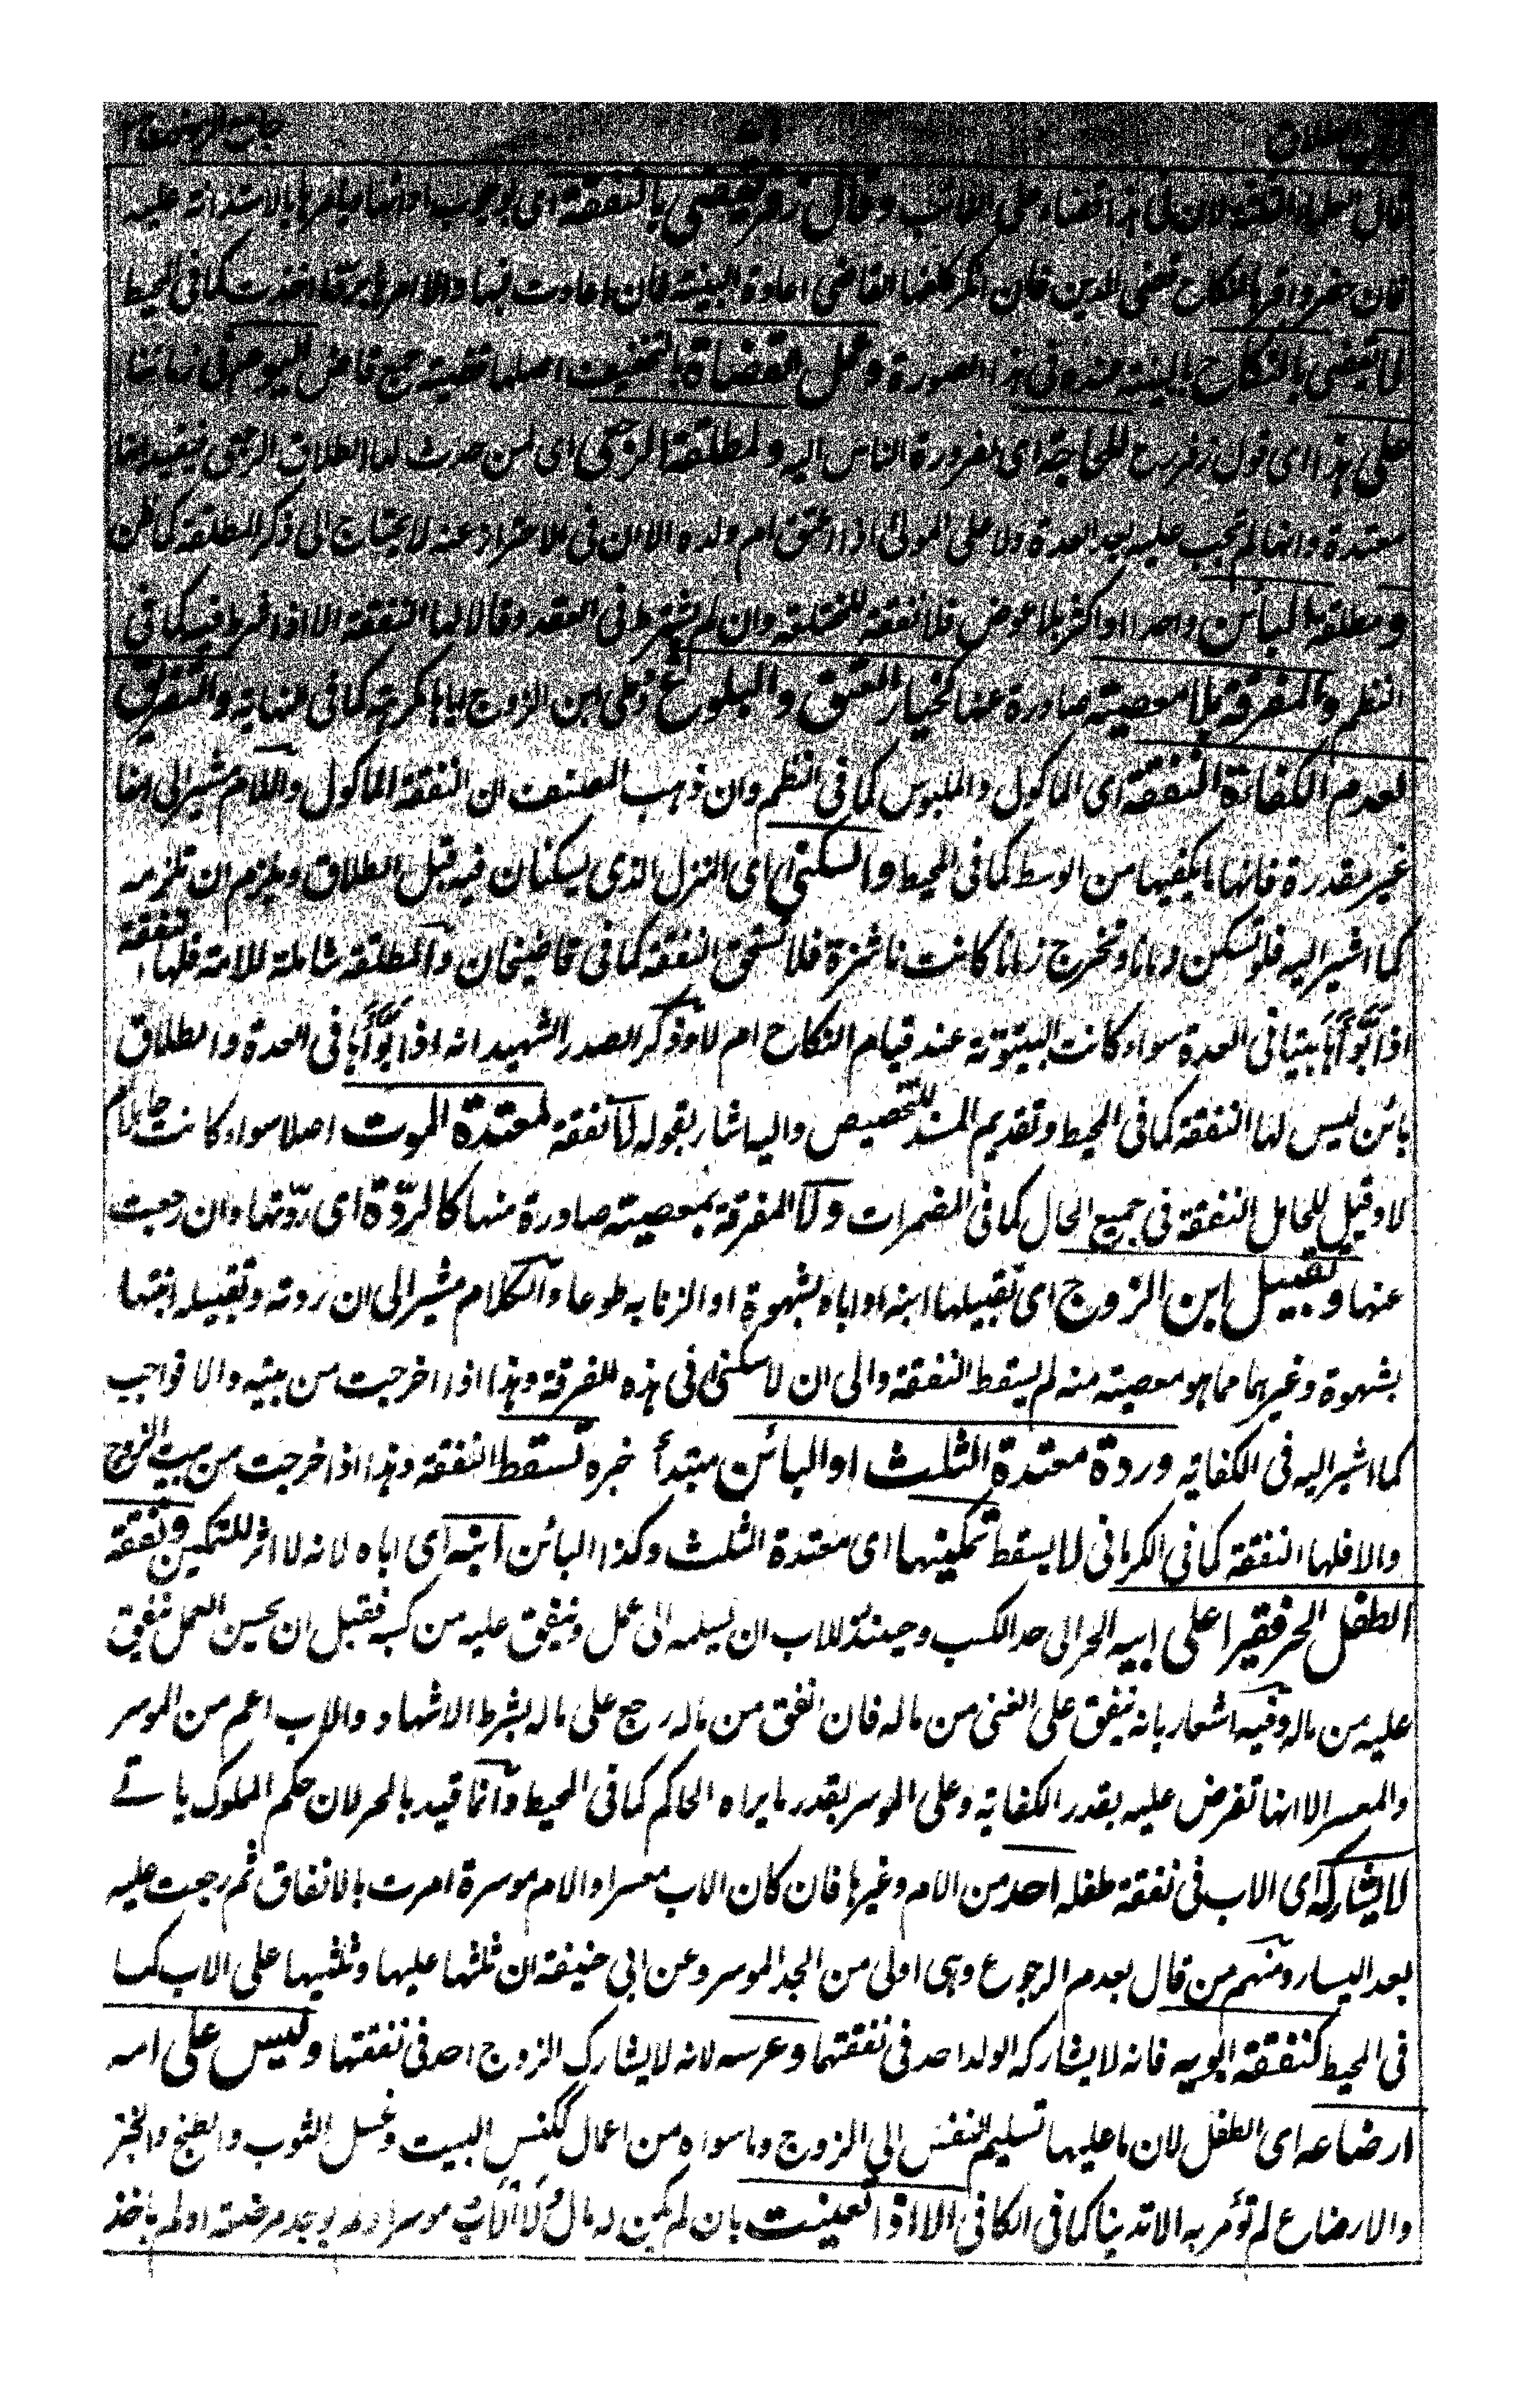 كتاب الطلاق
جامع الرموز ج ٢
قال العلماء الثلثة لان فى هذا قضاء على الغائب وقال زفر يقضى بالنفقة اى بوجوب ادائها ويامرها بالاستدانة عليه
فان حضر واقر بالنكاح قضى الدين فان انكر كلفها القاضى اعادة البينة فان اعادت فبها والا امرها برد ما اخذت كما فى المحيط
لا يقضى بالنكاح بالبينة عنده فى هذا الصورة وعمل القضاة بالتخفيف اصلها قضية جمع قاض اليوم فى زماننا
على هذا اى قول زفر رح للحاجة اى لضرورة الناس اليه ولمطلقة الرجعى اى لمن حدث لها الطلاق الرجعى
معتدة وانها لم تجب عليه بعد العدة ولا على المولى اذا اعتق ام ولده الا ان فى الاحتراز عنه لا يحتاج الى ذكر المطلقة كما ظن
ومطلقة البائن واحدا او اكثر بلا عوض فلا نفقة للمختلعة وان لم يشترط فى العقد وقالا لها النفقة الا اذا شرط فيه كما فى
النظم والمفرقة بلا معصية صادرة عنها كخيار العتق والبلوغ ووطى ابن الزوج اياها مكرهة كما فى النهاية والتفريق
لعدم الكفاءة النفقة اى الماكول والملبوس كما فى النظم وان ذهب المصنف ان النفقة الماكول والكلام مشير الى انها
غير مقدرة فانها ما يكفيها من الوسط كما فى المحيط والسكنى اى المنزل الذى يسكنان فيه قبل الطلاق ويلزم ان تلزمه
كما اشير اليه فلو تسكن زمانا وتخرج زمانا كانت ناشزة فلا تستحق النفقة كما فى قاضيخان والمطلقة شاملة للامة فلها النفقة
اذا بوأها بيتا فى العدة سواء كانت البيتوتة عند قيام النكاح ام لا وذكر الصدر الشهيد انه اذا بوأها فى العدة والطلاق
بائن ليس لها النفقة كما فى المحيط وتقديم المسند للتخصيص واليه اشار بقوله لا نفقة لمعتدة الموت اصلا سواء كانت حاملا ام
لا وقيل للحامل النفقة فى جميع الحال كما فى المضمرات ولا المفرقة بمعصية صادرة منها كالردة اى ردتها وان رجعت
عنها وتقبيل ابن الزوج اى تقبيلها ابنه او اباه بشهوة او الزنا به طوعا والكلام مشير الى ان ردته وتقبيله ابنتها
بشهوة وغيرهما مما هو معصية منه لم يسقط النفقة والى ان لا سكنى فى هذه المفرقة وهذا اذا خرجت من بيته والا فواجب
كما اشير اليه فى الكفاية وردة معتدة الثلث او البائن مبتدأ خبره تسقط النفقة وهذا اذا خرجت من بيت الزوج
والا فلها النفقة كما فى الكرمانى لا يسقط تمكينها اى معتدة الثلث وكذا البائن ابنه اى اباه لانه لا اثر للتمكين ونفقة
الطفل الحر فقيرا على ابيه الحر الى حد الكسب وحينئذ للاب ان يسلمه الى عمل وينفق عليه من كسبه فقبل ان يحسن العمل ينفق
عليه من ماله وفيه اشعار بانه ينفق على الغنى من ماله فان انفق من ماله رجع على ماله بشرط الاشهاد والاب اعم من الموسر
والمعسر الا انها تفرض عليه بقدر الكفاية وعلى الموسر بقدر ما يراه الحاكم كما فى المحيط وانما قيد بالحر لان حكم المملوك ياتى
لا يشاركه اى الاب فى نفقة طفله احد من الام وغيرها فان كان الاب معسرا والام موسرة امرت بالانفاق ثم رجعت عليه
بعد اليسار ومنهم من قال بعدم الرجوع وهى اولى من الجد الموسر وعن ابى حنيفة ان ثلثها عليها وثلثيها على الاب كما
فى المحيط كنفقة ابويه فانه لا يشاركه الولد احد فى نفقتهما وعرسه لانه لا يشارك الزوج احد فى نفقتها وليس على امه
ارضاعه اى الطفل لان ما عليها تسليم النفس الى الزوج وما سواه من اعمال ككنس البيت وغسل الثوب والطبخ والخبز
والارضاع لم تؤمر به الا تدينا كما فى الكافى الا اذا تعينت بان لم يكن له مال ولا لاب موسرا ولم يوجد مرضعة او لم ياخذ